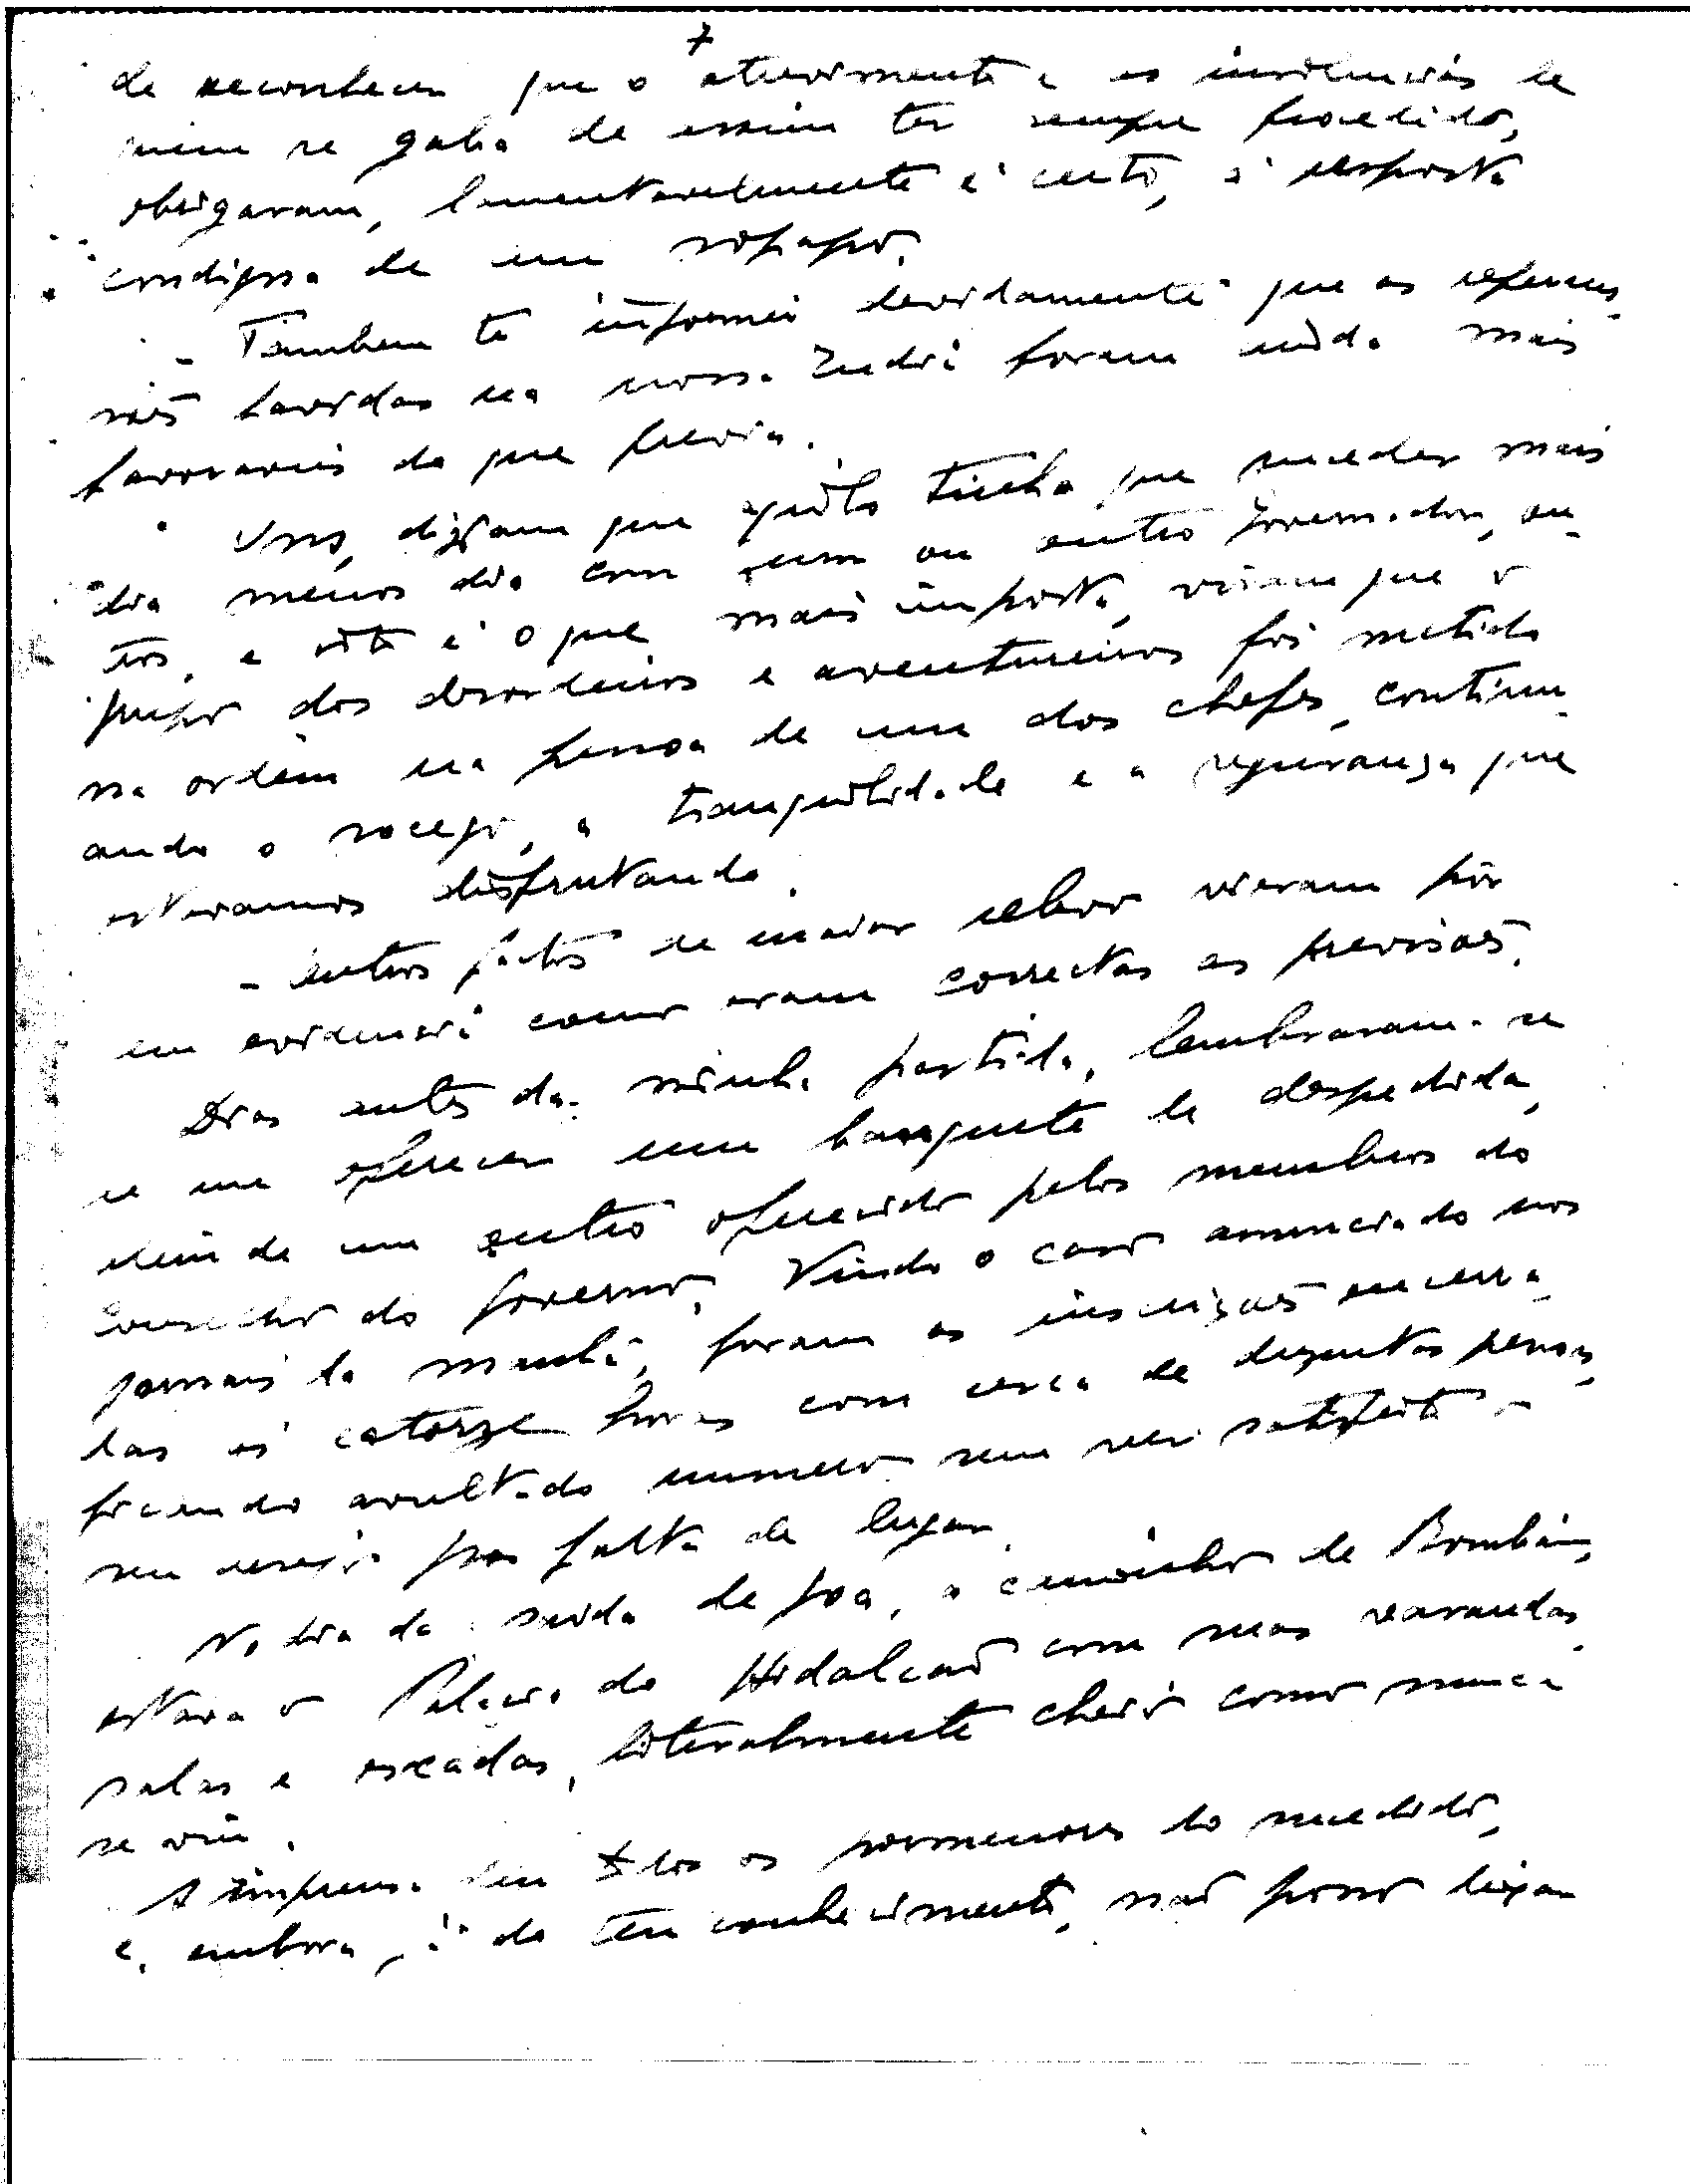 7
de reconhecer que o atrevimento e as insolencias de
quem se gaba de assim ter sempre procedido,
obrigaram, lamentavelmente é certo, á resposta
condigna de um sopapo.
- Tambem te informei devidamente que as repercus-
sões havidas na nossa India foram ainda mais
favoraveis do que previa.
Uns, diziam que aquilo tinha que suceder mais
dia menos dia com um ou outro governador, ou-
tros, e isto é o que mais importa, viram que o
grupo dos desordeiros e aventureiros foi metido
na ordem na pessoa de um dos chefes, continu-
ando o socego, a tranquilidade e a segurança que
estavamos disfrutando.
- Outros factos de maior relevo vieram pôr
em evidencia como eram correctas as previsões.
Dias antes da minha partida, lembraram-se
de me oferecer um banquete de despedida,
alem de um outro oferecido pelos membros do
Conselho do Governo. Vindo o caso anunciado nos
jornais da manhã, foram as inscrições encerra-
das ás catorze horas com cerca de duzentas pessoas,
ficando avultado numero sem ver satisfeito o
seu desejo por falta de lugar.
No dia da saida de Goa, a caminho de Bombaim,
estava o Palacio do Hidalcão com suas varandas,
salas e escadas, literalmente cheio como nunca
se viu.
A imprensa deu todos os pormenores do sucedido,
e, embora já do teu conhecimento, não posso deixar